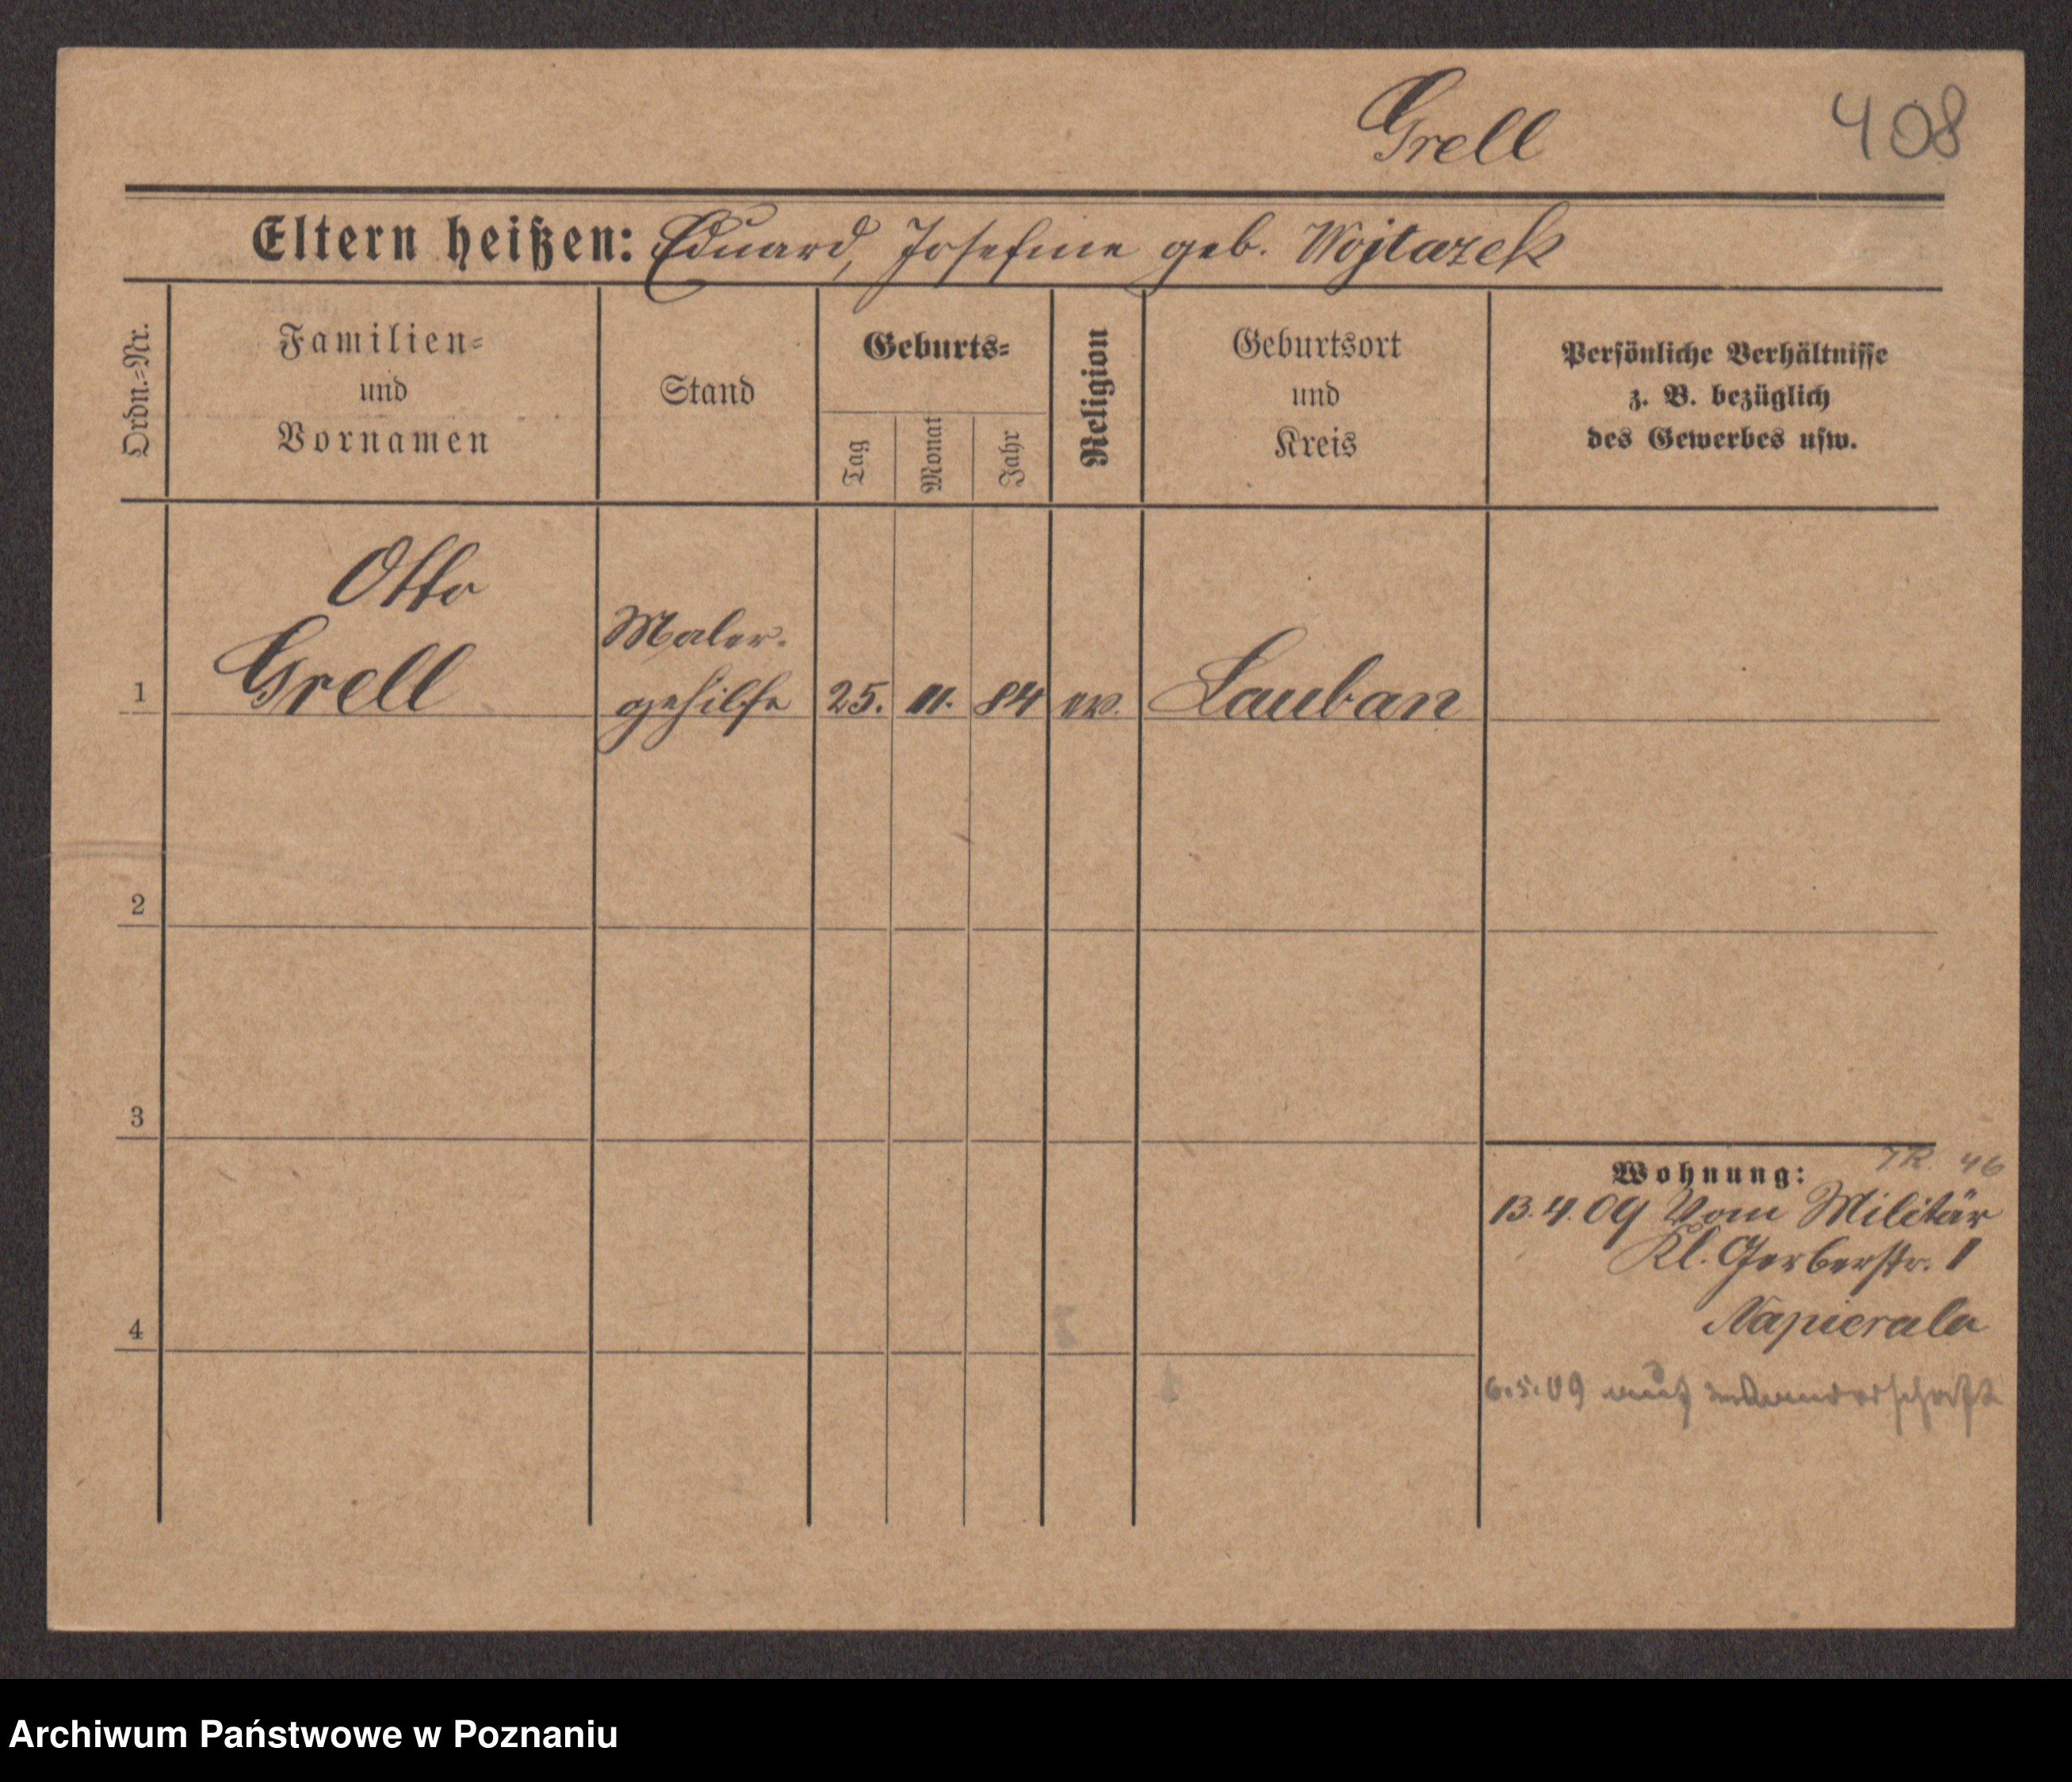 Grell 408
Eltern heißen: Eduard, Josefine geb. Wojtazek
Ordn.=Nr.
Familien=
und
Vornamen
Stand
Geburts=
Tag
Monat
Jahr
Religion
Geburtsort
und
Kreis
Persönliche Verhältnisse
z. B. bezüglich
des Gewerbes usw.
Otto
Grell
Maler-
gehilfe
1 25. 11. 84 ev. Lauban
2
3
Wohnung:
46
13.4.09 Vom Militär
Kl. Gerberstr. 1
Napierala
4
6.5.09 auf Wanderschaft
Archiwum Państwowe w Poznaniu